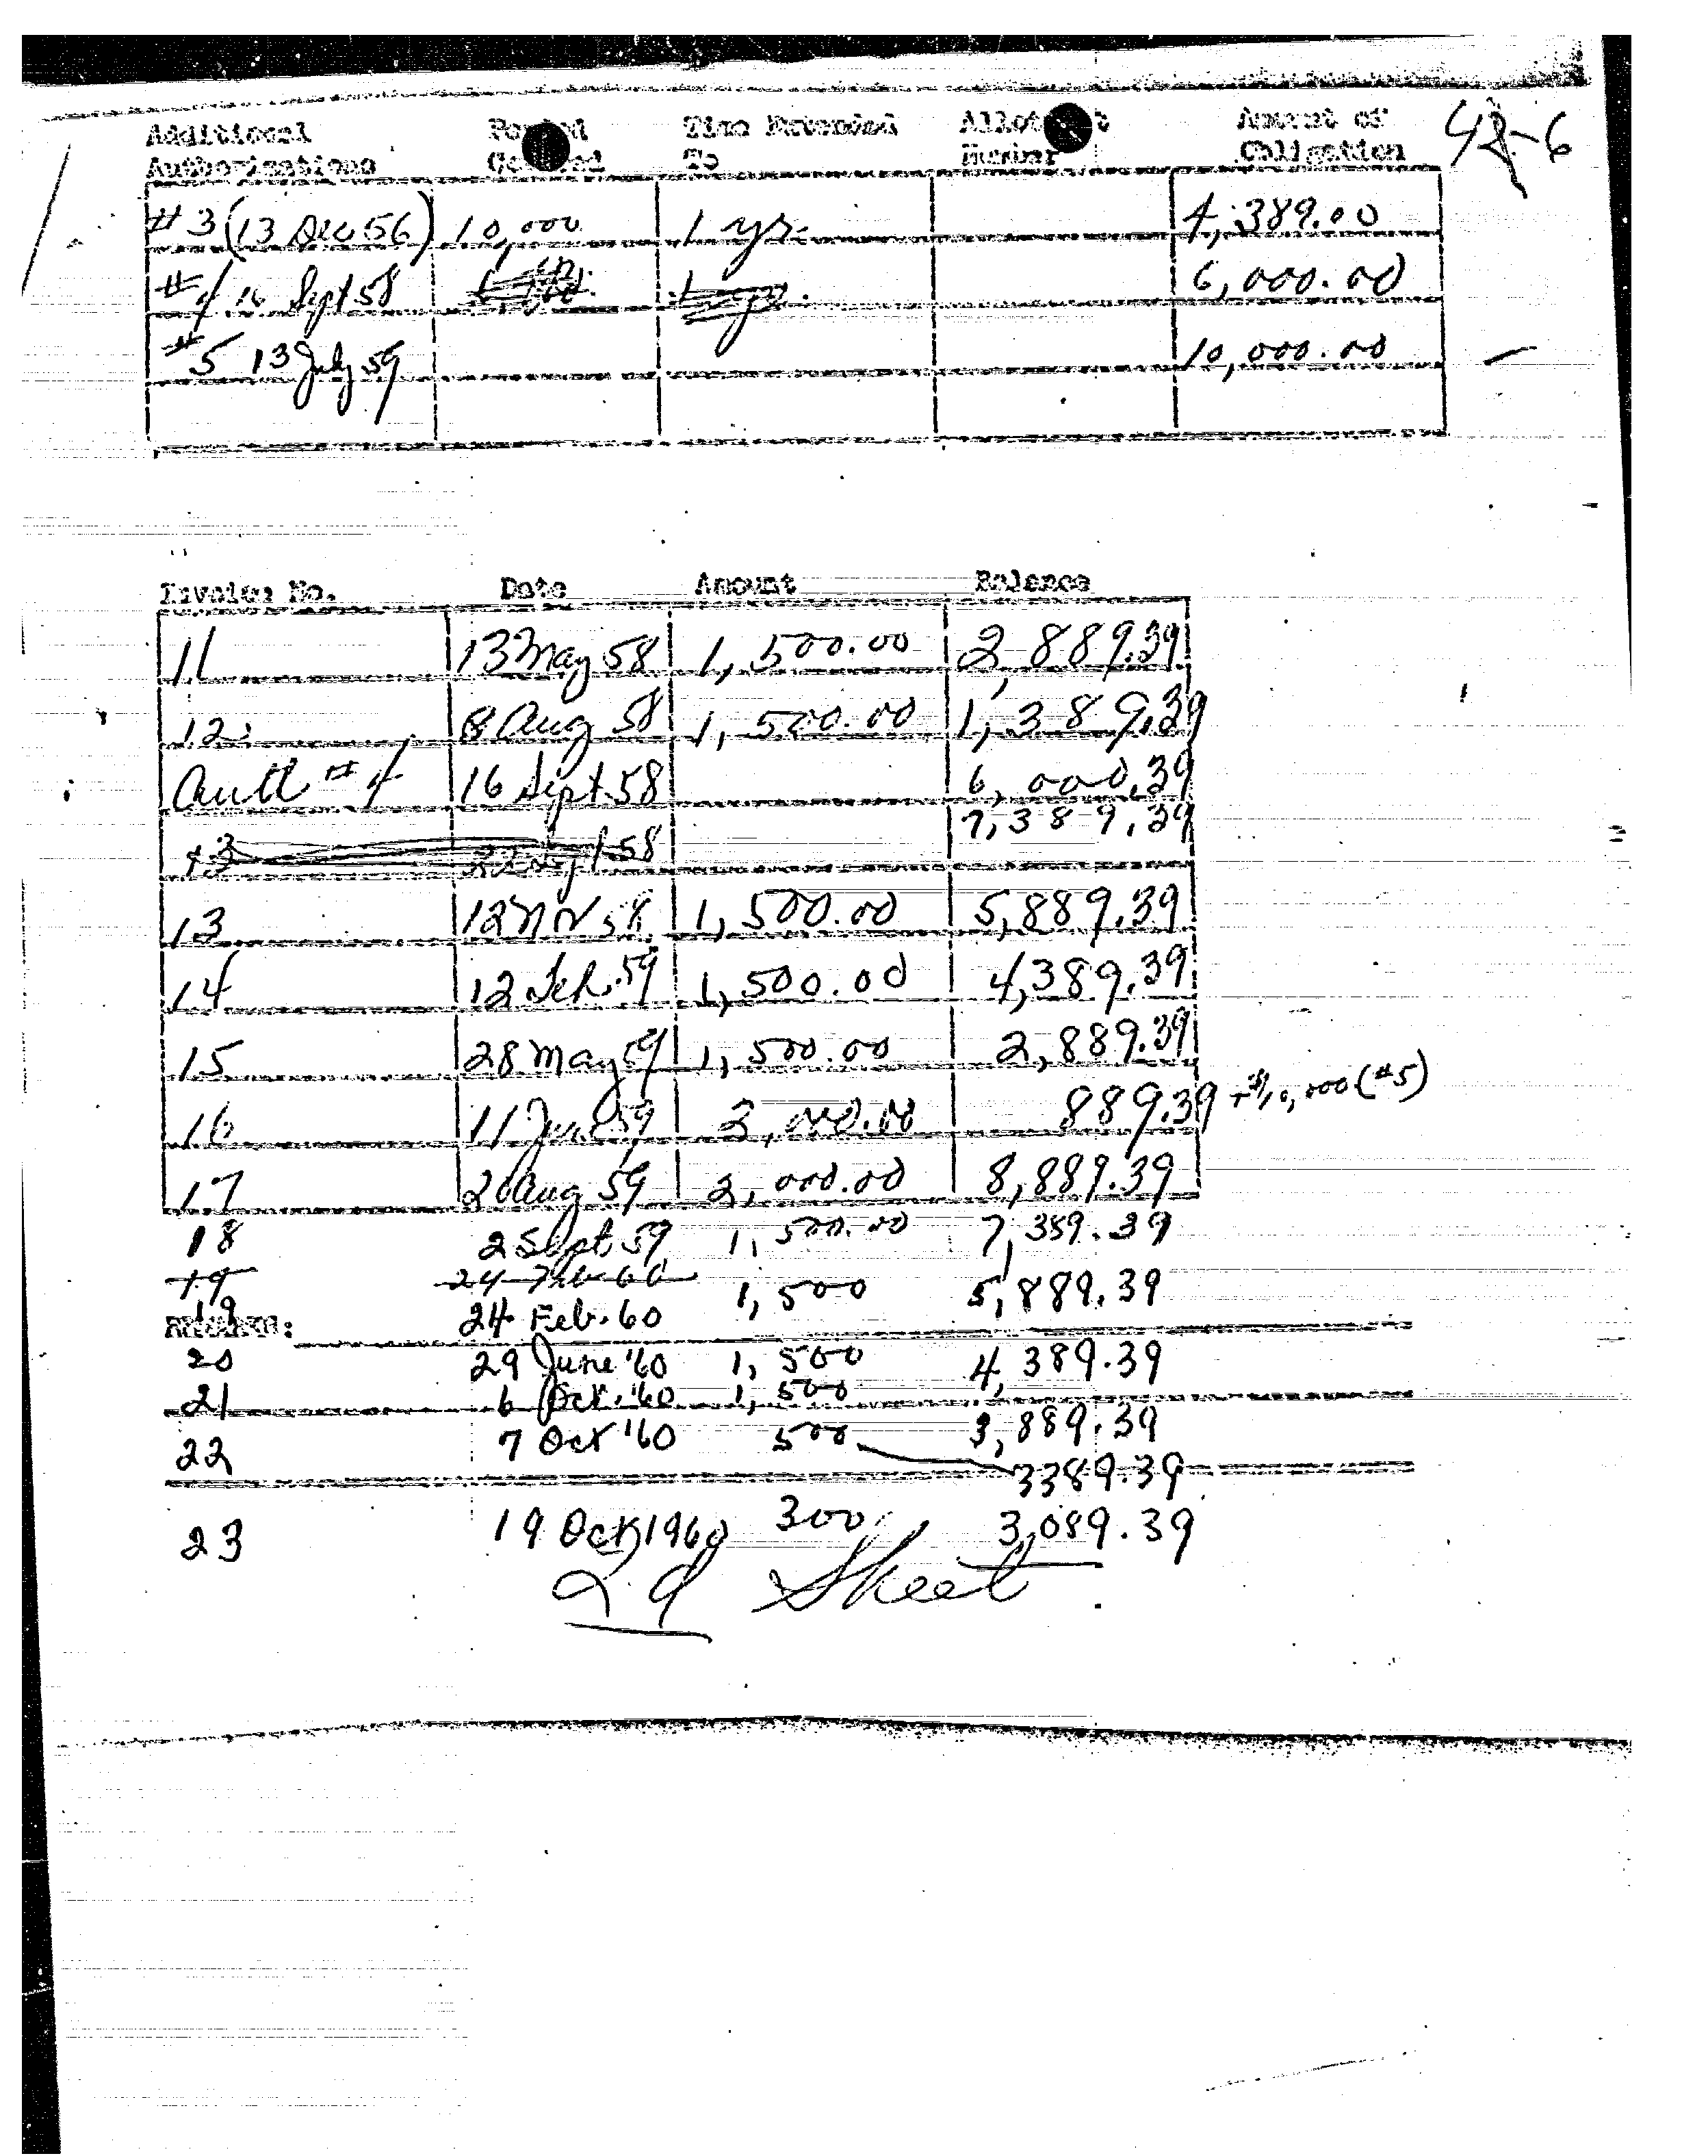 42-6
Additional Period Time Extended Allotment Amount of
Authorizations Covered To Number Obligation
#3 (13 Dec 56) 10,000 1 yr. 4,389.00
#4 16 Sept 58 6,000.00
#5 13 July 59 10,000.00 —
Invoice No. Date Amount Balance
11 13 May 58 1,500.00 2,889.39
12 8 Aug 58 1,500.00 1,389.39
Auth #4 16 Sept. 58 6,000.39
7,389.39
13 58
13 12 Nov 58 1,500.00 5,889.39
14 12 Feb. 59 1,500.00 4,389.39
15 28 May 59 1,500.00 2,889.39
16 11 59 2,000.00 889.39 + $10,000 (#5)
17 20 Aug 59 2,000.00 8,889.39
18 2 Sept. 59 1,500.00 7,389.39
19 24 Feb 60
19 24 Feb. 60 1,500 5,889.39
REMARKS:
20 29 June '60 1,500 4,389.39
21 6 Oct. '60 1,500
22 7 Oct '60 500 3,889.39
3389.39
23 19 Oct 1960 300 3,089.39
Sheet